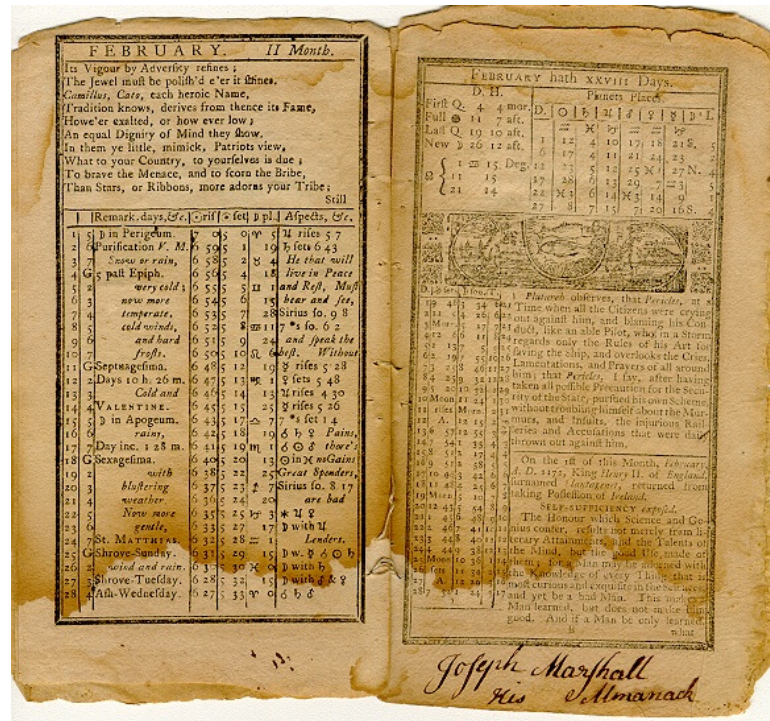 FEBRUARY. II Month.
Its Vigour by Adversity refines ;
The Jewel must be polish'd e'er it shines.
Camillus, Cato, each heroic Name,
Tradition knows, derives from thence its Fame,
Howe'er exalted, or how ever low ;
An equal Dignity of Mind they show.
In them ye little, mimick, Patriots view,
What to your Country, to yourselves is due ;
To brave the Menace, and to scorn the Bribe,
Than Stars, or Ribbons, more adorns your Tribe ;
Still
Remark. days, &c. ☉ris ☉set ☽ pl. Aspects, &c.
1 5 ☽ in Perigeum. 7 0 5 0 ♈ 5 ♃ rises 5 7
2 6 Purification V. M. 6 59 5 1 19 ♄ sets 6 43
3 7 Snow or rain, 6 58 5 2 ♉ 4 He that will
4 G 5 past Epiph. 6 56 5 4 18 live in Peace
5 2 very cold ; 6 55 5 5 ♊ 1 and Rest, Must
6 3 now more 6 54 5 6 15 hear and see,
7 4 temperate, 6 53 5 7 28 Sirius so. 9 8
8 5 cold winds, 6 52 5 8 ♋ 11 7 *s so. 6 2
9 6 and hard 6 51 5 9 24 and speak the
10 7 frosts. 6 50 5 10 ♌ 6 best. Without
11 G Septuagesima. 6 48 5 12 19 ☿ rises 5 28
12 2 Days 10 h. 26 m. 6 47 5 13 ♍ 1 ♀ sets 5 48
13 3 Cold and 6 46 5 14 13 ♃ rises 4 30
14 4 VALENTINE. 6 45 5 15 25 ☿ rises 5 26
15 5 ☽ in Apogeum. 6 43 5 17 ♎ 7 7 *s set 1 4
16 6 rain, 6 42 5 18 19 ☌ ♄ ♀ Pains,
17 7 Day inc. 1 28 m. 6 41 5 19 ♏ 1 ☌ ☉ ♂ there's
18 G Sexagesima. 6 40 5 20 13 ☉ in ♓ no Gains
19 2 with 6 38 5 22 25 Great Spenders,
20 3 blustering 6 37 5 23 ♐ 7 Sirius so. 8 17
21 4 weather. 6 36 5 24 20 are bad
22 5 Now more 6 35 5 25 ♑ 3 ✶ ♃ ♀
23 6 gentle, 6 33 5 27 17 ☽ with ♃
24 7 St. MATTHIAS. 6 32 5 28 ♒ 1 Lenders.
25 G Shrove-Sunday. 6 31 5 29 15 ☽ w. ☿ ♂ ☉ ♄
26 2 wind and rain. 6 30 5 30 ♓ 0 ☽ with ♄
27 3 Shrove-Tuesday. 6 28 5 32 15 ☽ with ♂ & ♀
28 4 Ash-Wednesday. 6 27 5 33 ♈ 0 ☌ ♄ ♂
FEBRUARY hath XXVIII Days.
D. H.
First Q. 4 4 mor.
Full 11 7 aft.
Last Q. 19 10 aft.
New ☽ 26 12 aft.
1 ♒ 15. Deg.
11 15
21 14
Planets Places.
D. ☉ ♄ ♃ ♂ ♀ ☿ ☽'s L.
♒ ♓ ♑ ♒ ♓ ♑
1 12 4 10 17 18 21 S. 5
6 17 4 11 21 24 23 2
12 23 5 12 25 ♓ 1 27 N. 4
17 28 6 13 29 7 ♒ 3 5
22 ♓ 3 6 14 ♓ 3 14 9 1
27 8 7 15 7 20 16 S. 4
Plutarch observes, that Pericles, at a
Time when all the Citizens were crying
out against him, and blaming his Con-
duct, like an able Pilot, who in a Storm
regards only the Rules of his Art for
saving the Ship, and overlooks the Cries,
Lamentations, and Prayers of all around
him ; that Pericles, I say, after having
taken all possible Precaution for the Secu-
rity of the State, pursued his own Scheme,
without troubling himself about the Mur-
murs, and Insults, the injurious Rail-
leries and Accusations that were daily
thrown out against him.
On the 1st of this Month, February,
A. D. 1173, King Henry II. of England,
surnamed Plantagenet, returned from
taking Possession of Ireland.
SELF-SUFFICIENCY exposed.
The Honour which Science and Ge-
nius confer, results not merely from li-
terary Attainments, and the Talents of
the Mind, but the good Use made of
them ; for a Man may be adorned with
the Knowledge of every Thing that is
most curious and exquisite in the Sciences
and yet be a bad Man. This makes a
Man learned, but does not make him
good. And if a Man be only learned,
what
Joseph Marshall
His Almanack